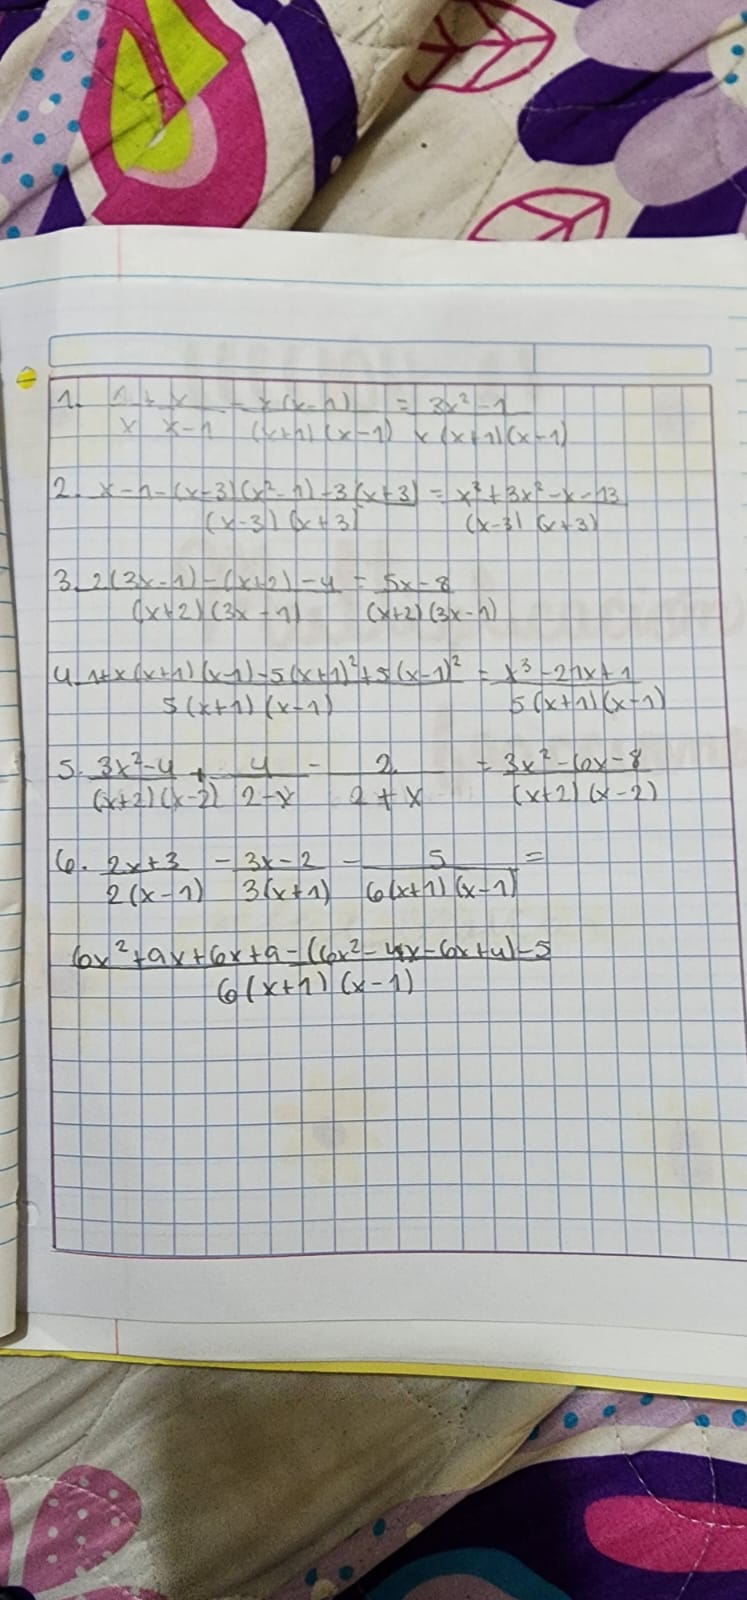 1. 1/x + x/(x-1) - x(x-1)/((x+1)(x-1)) = (3x²-1)/(x(x+1)(x-1))
2. (x-1-(x-3)(x²-1)-3(x+3))/((x-3)(x+3)) = (x³+3x²-x-13)/((x-3)(x+3))
3. (2(3x-1)-(x+2)-4)/((x+2)(3x-1)) = (5x-8)/((x+2)(3x-1))
4. (1+x(x+1)(x-1)-5(x+1)²+5(x-1)²)/(5(x+1)(x-1)) = (x³-21x+1)/(5(x+1)(x-1))
5. (3x²-4)/((x+2)(x-2)) + 4/(2-x) - 2/(2+x) = (3x²-6x-8)/((x+2)(x-2))
6. (2x+3)/(2(x-1)) - (3x-2)/(3(x+1)) - 5/(6(x+1)(x-1)) =
(6x²+9x+6x+9-(6x²-4x-6x+4)-5)/(6(x+1)(x-1))